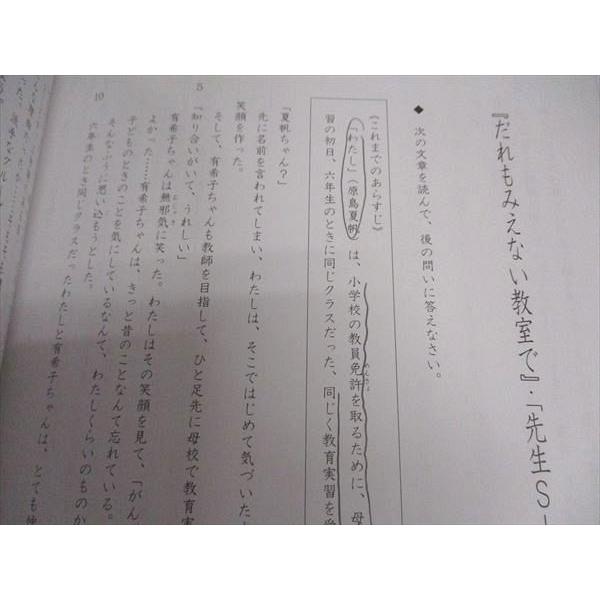 『だれもみえない教室で』・「先生S
◆ 次の文章を読んで、後の問いに答えなさい。
《これまでのあらすじ》
「わたし」(原島夏帆)は、小学校の教員免許を取るために、母
習の初日、六年生のときに同じクラスだった、同じく教育実習を
「夏帆ちゃん?」
先に名前を言われてしまい、わたしは、そこではじめて気づいた
笑顔を作った。
そして、有希子ちゃんも教師を目指して、ひと足先に母校で教育実
5
「知り合いがいて、うれしい」
有希子ちゃんは無邪気に笑った。わたしはその笑顔を見て、「がん
よかった……有希子ちゃんは、きっと昔のことなんて忘れている。
子どものときのことを気にしているなんて、わたしくらいのものか
そんなふうに思い込もうとした。
10
六年生のとき同じクラスだったわたしと有希子ちゃんは、とても仲